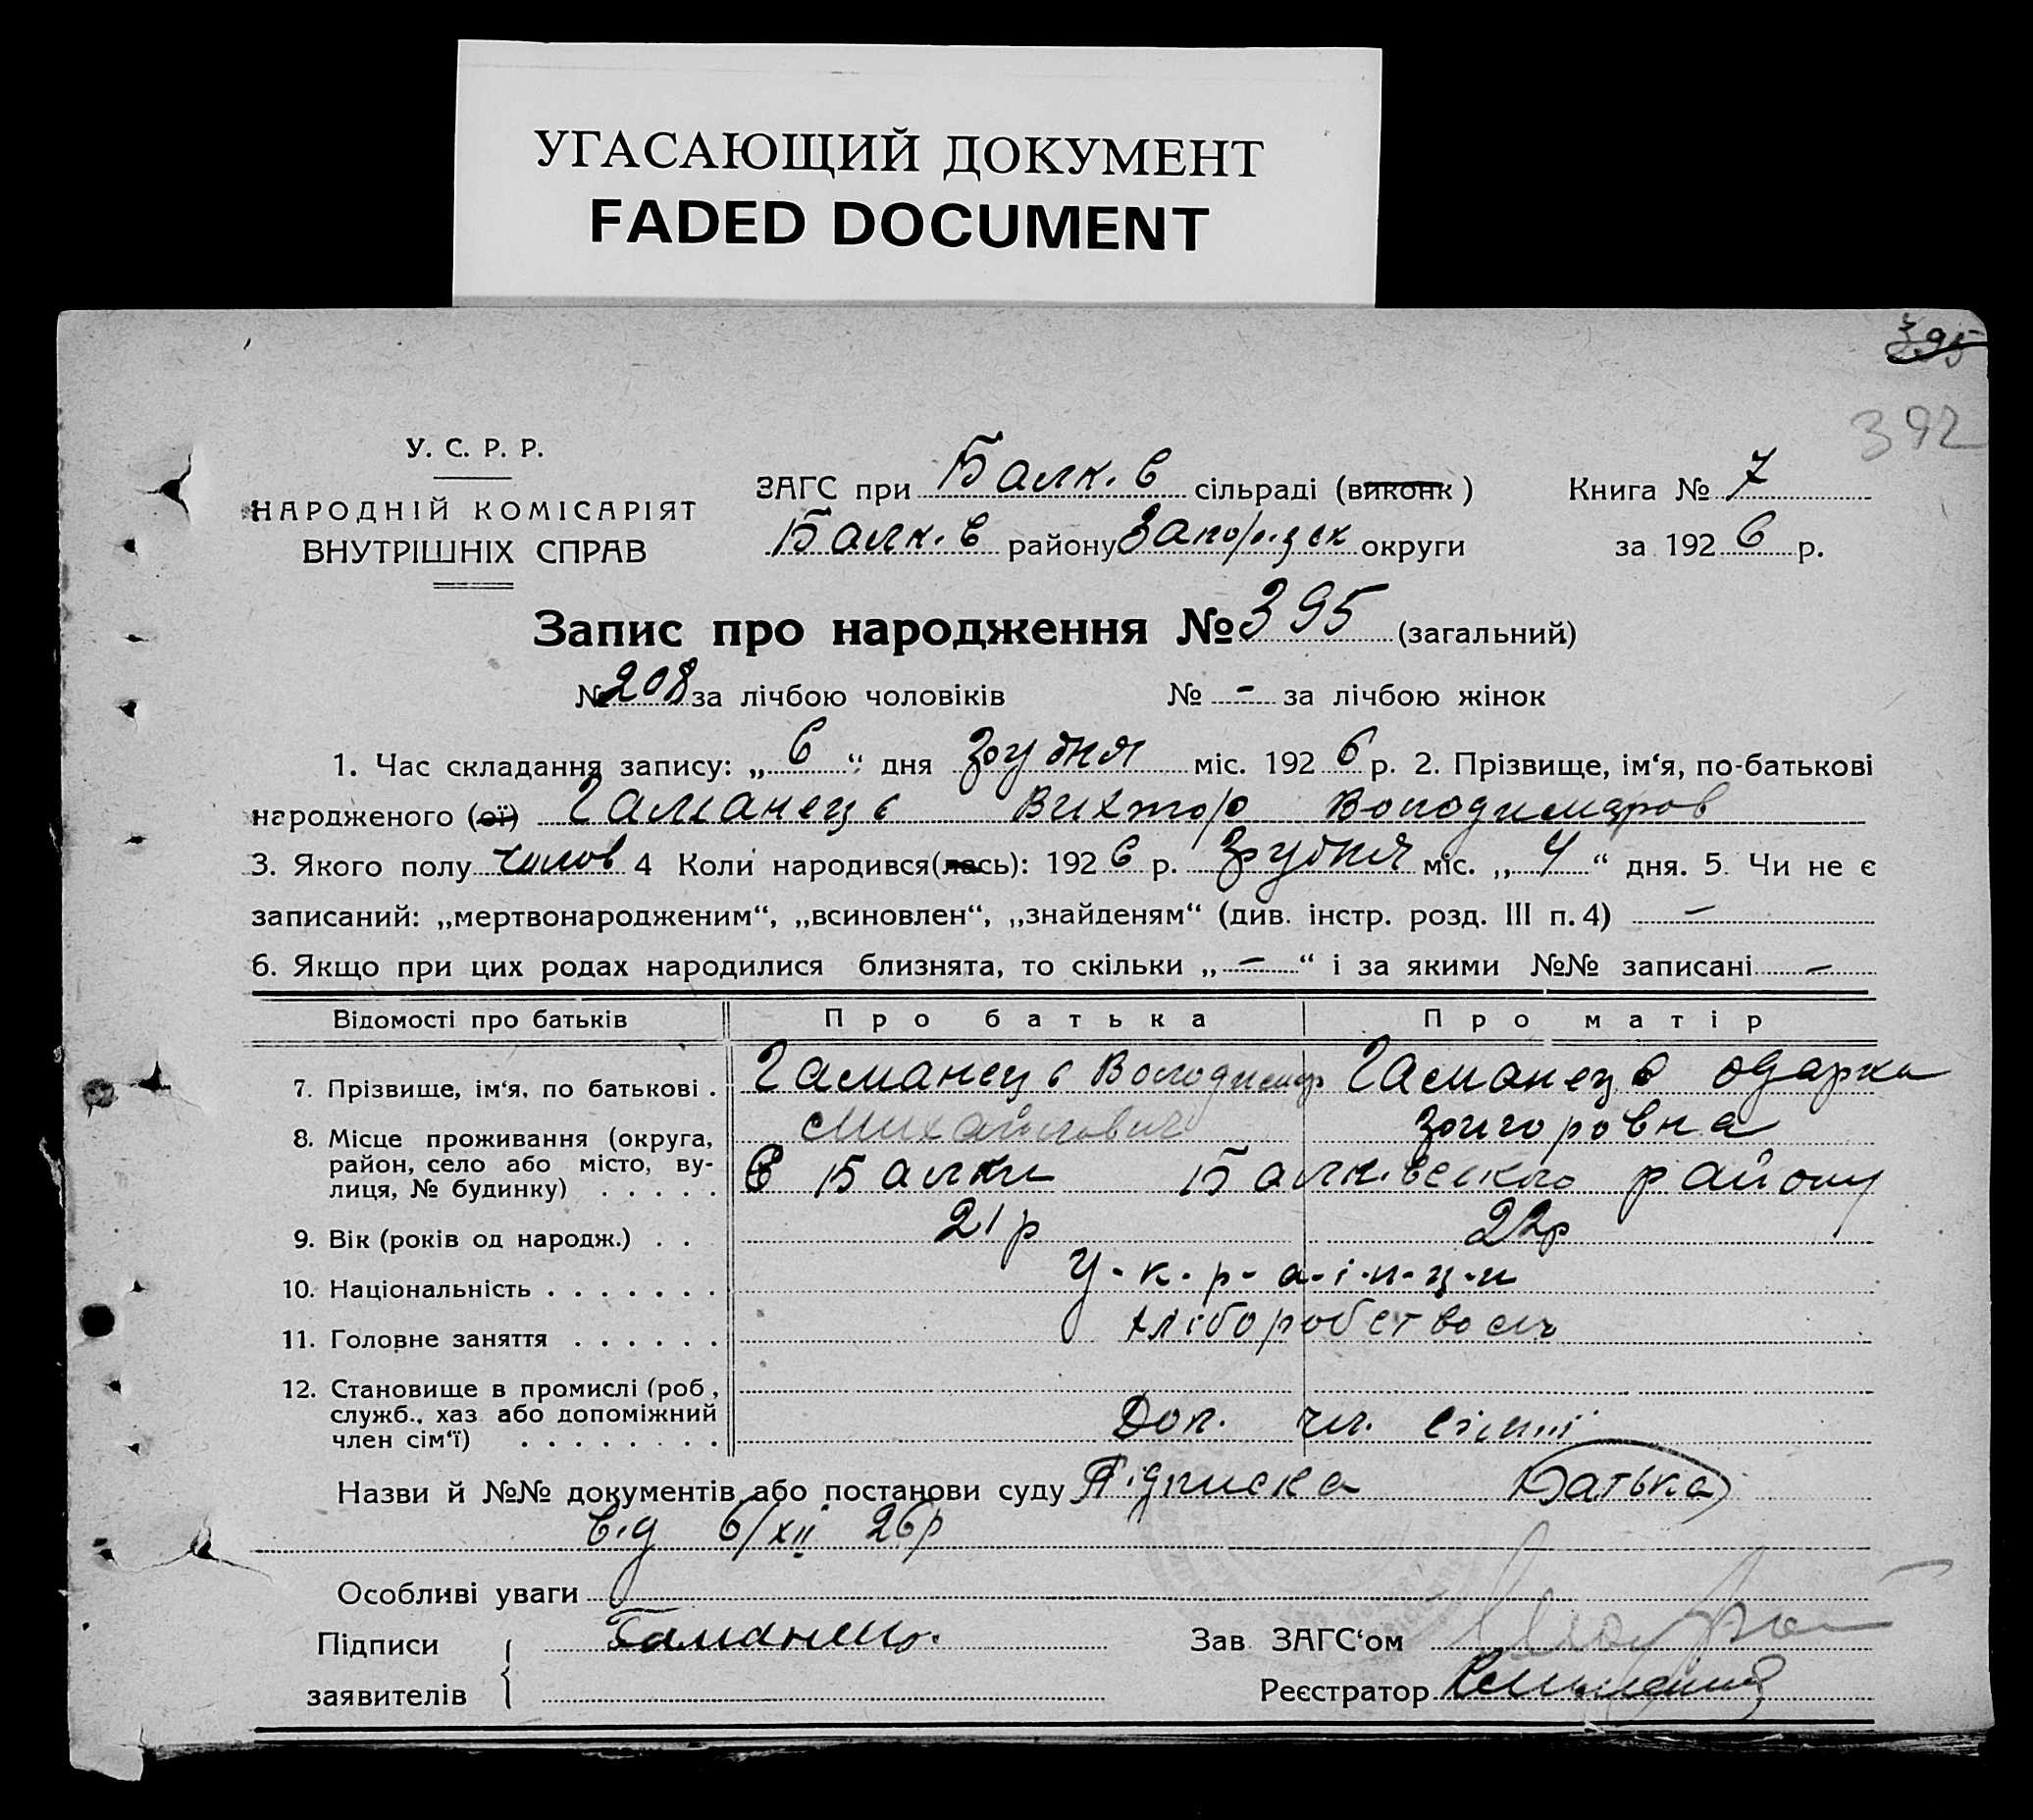 УГАСАЮЩИЙ ДОКУМЕНТ
FADED DOCUMENT
395
392
У. С. Р. Р.
НАРОДНІЙ КОМІСАРІЯТ
ВНУТРІШНІХ СПРАВ
ЗАГС при Балк. в сільраді (виконк)
Балк. в району Запоріzск округи
Книга № 7
за 1926 р.
Запис про народження № 395 (загальний)
№ 208 за лічбою чоловіків № - за лічбою жінок
1. Час складання запису: „6“ дня Грудня міс. 1926 р. 2. Прізвище, ім‘я, по-батькові
народженого (ої) Гаманець Виктор Володимиров
3. Якого полу чолов 4 Коли народився(лась): 1926 р. Грудня міс. „4“ дня. 5. Чи не є
записаний: „мертвонародженим“, „всиновлен“, „знайденям“ (див. інстр. розд. III п. 4) -
6. Якщо при цих родах народилися близнята, то скільки „-“ і за якими №№ записані -
Відомості про батьків Про батька Про матір
7. Прізвище, ім‘я, по батькові . Гаманець Володимир Гаманець одарка
Михайлович Григоровна
8. Місце проживання (округа,
район, село або місто, ву-
лиця, № будинку) . . . . . С Балки Балківського району
9. Вік (років од народж.) . . 21 р 22р
10. Національність . . . . . . . У-к-р-а-ї-н-ц-и
11. Головне заняття . . . . . . хліборобством
12. Становище в промислі (роб,
служб., хаз або допоміжний
член сім‘ї) . . . . . . . . Доп. чл. сімї
Назви й №№ документів або постанови суду Підписка Батька
від 6/XII 26р
Особливі уваги
Підписи Гаманець.
заявителів
Зав ЗАГС‘ом
Реєстратор